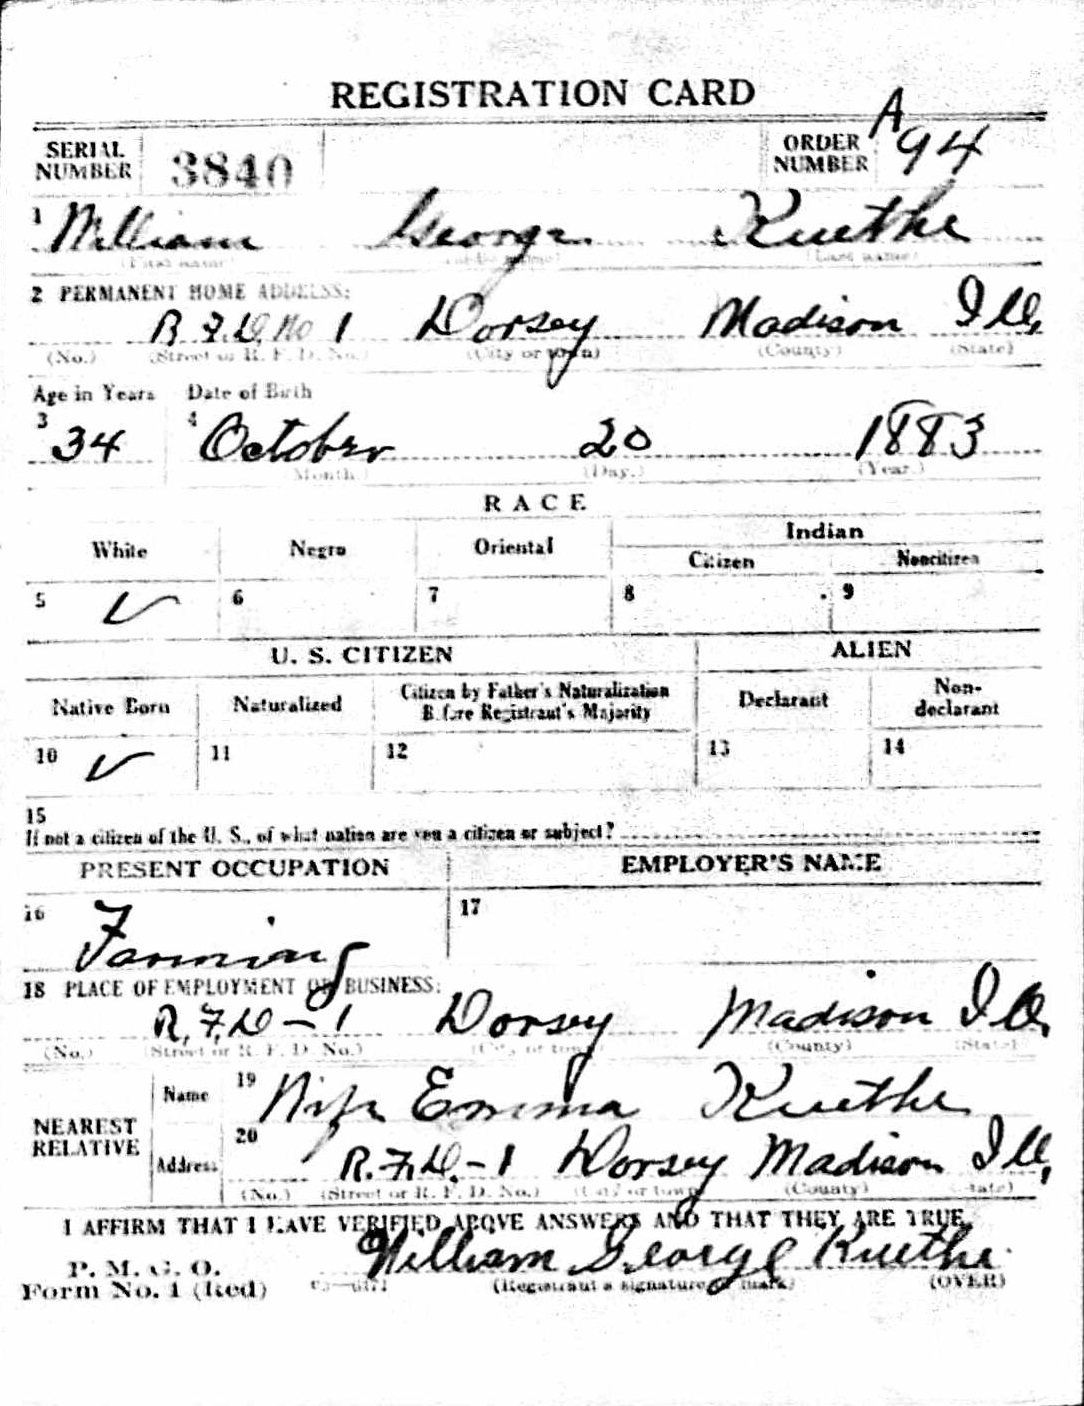 REGISTRATION CARD
SERIAL NUMBER 3840 ORDER NUMBER A 94
1 William George Kuethe
(First name) (Middle name) (Last name)
2 PERMANENT HOME ADDRESS:
R.F.D. No 1 Dorsey Madison Ill.
(No.) (Street or R. F. D. No.) (City or town) (County) (State)
Age in Years Date of Birth
3 34 4 October 20 1883
(Month.) (Day.) (Year.)
RACE
White Negro Oriental Indian
Citizen Noncitizen
5 ✓ 6 7 8 9
U. S. CITIZEN ALIEN
Native Born Naturalized Citizen by Father's Naturalization Before Registrant's Majority Declarant Non-declarant
10 ✓ 11 12 13 14
15
If not a citizen of the U. S., of what nation are you a citizen or subject?
PRESENT OCCUPATION EMPLOYER'S NAME
16 Farming 17
18 PLACE OF EMPLOYMENT OR BUSINESS:
R.F.D-1 Dorsey Madison Ill.
(No.) (Street or R. F. D. No.) (City or town) (County) (State)
NEAREST RELATIVE Name 19 Wife Emma Kuethe
Address 20 R.F.D.-1 Dorsey Madison Ill.
(No.) (Street or R. F. D. No.) (City or town) (County) (State)
I AFFIRM THAT I HAVE VERIFIED ABOVE ANSWERS AND THAT THEY ARE TRUE.
P. M. G. O.
Form No. 1 (Red) William George Kuethe
(Registrant's signature or mark) (OVER)